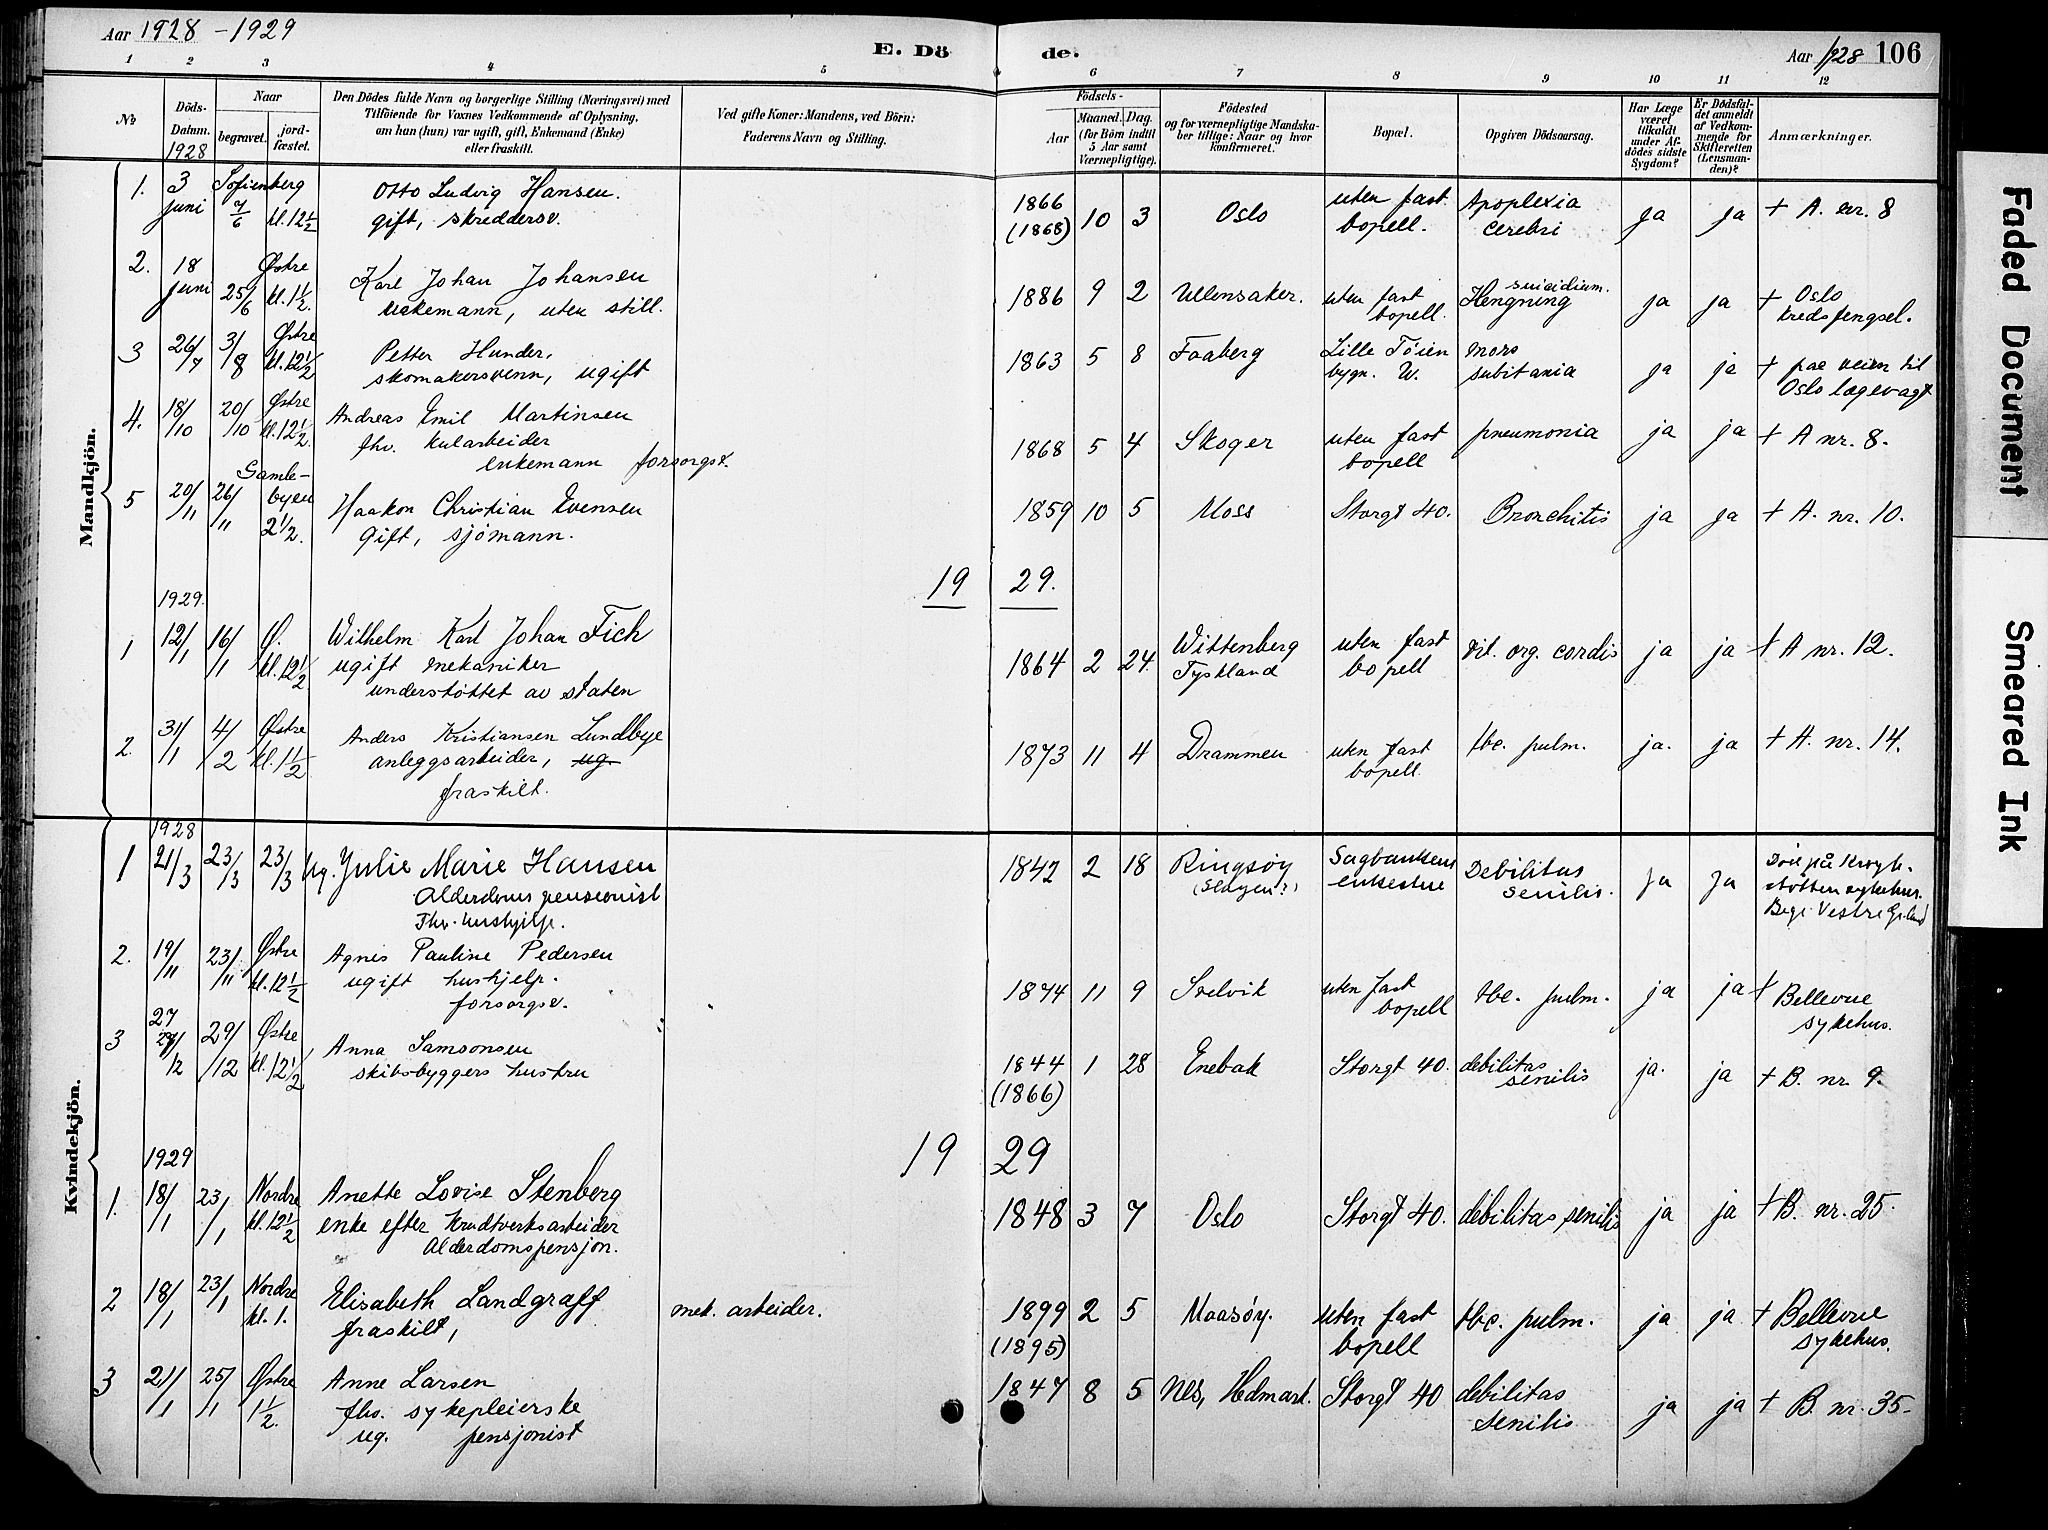 Aar 1928 - 1929
E. Dö de.
Aar 1928 106
1 2 3 4 5 6 7 8 9 10 11 12
№
Döds-Datum. 1928
Naar
begravet.
jord-fæstet.
Den Dödes fulde Navn og borgerlige Stilling (Næringsvei) med
Tilföiende for Voxnes Vedkommende af Oplysning,
om han (hun) var ugift, gift, Enkemand (Enke)
eller fraskilt.
Ved gifte Koner: Mandens, ved Börn:
Faderens Navn og Stilling.
Födsels-
Aar
Maaned. Dag.
(for Börn indtil
5 Aar samt
Værnepligtige).
Födested
og for værnepligtige Mandska-
ber tillige: Naar og hvor
konfirmeret.
Bopæl.
Opgiven Dödsaarsag.
Har Læge
været
tilkaldt
under Af-
dödes sidste
Sygdom?
Er Dödsfal-
det anmeldt
af Vedkom-
mende for
Skifteretten
(Lensman-
den)?
Anmærkninger.
Mandkjön.
1. 3 juni Sofienberg 7/6 kl. 12½ Otto Ludvig Hansen.
gift, skreddersv.
1866 (1868) 10 3 Oslo uten fast bopell. Apoplexia cerebri ja ja + A. nr. 8
2. 18 juni 25/6 Østre kl. 1½. Karl Johan Johansen
enkemann, uten still.
1886 9 2 Ullensaker. uten fast bopell. suicidium. Hengning ja ja + Oslo kredsfengsel.
3 26/7 3/8 Østre kl. 12½ Petter Hunder,
skomakersvenn, ugift
1863 5 8 Faaberg Lille Töien bygn. W. mors subitania ja ja + paa veien til Oslo lægevagt
4. 18/10 20/10 Østre kl. 12½. Andreas Emil Martinsen
fhv. kularbeider
enkemann forsorgst.
1868 5 4 Skoger uten fast bopell pneumonia ja ja + A nr. 8.
5 20/11 26/11 Gamle-byen 2½. Haakon Christian Evensen
Gift, sjömann.
1859 10 5 Moss Storgt 40. Bronchitis ja ja + A. nr. 10.
19 29.
1929.
1 12/1 16/1 Ø. kl. 12½ Wilhelm Karl Johan Fich
ugift mekaniker
understöttet av staten
1864 2 24 Wittenberg Tyskland uten fast bopell vit. org. cordis ja ja + A nr. 12.
2. 31/1 4/2 Østre kl. 1½ Anders Kristiansen Lundbye
anleggsarbeider, ug.
fraskilt.
1873 11 4 Drammen uten fast bopell. tbc. pulm. ja. ja + A. nr. 14.
Kvindekjön.
1928
1 21/3 23/3 23/3 Ug. Julie Marie Hansen
Alderdoms pensionist
Fhv. hushjelp.
1842 2 18 Ringsøy (Slagen?) Sagbankens enkestue Debilitas senilis. ja ja Död på Krogh-støtten sykehus. Begr. Vestre Gr.lund
2. 19/11 23/11 Østre kl. 12½ Agnes Pauline Pedersen
ugift hushjelp.
forsorgsv.
1874 11 9 Svelvik uten fast bopell tbc. pulm. ja ja + Bellevue sykehus.
3 27/12 29/12 Østre kl. 12½ Anna Samsonsen
skibsbyggers hustru
1844 (1866) 1 28 Enebak Storgt 40. debilitas senilis ja. ja + B. nr 9.
19 29
1929
1. 18/1 23/1 Nordre kl. 12½ Anette Lovise Stenberg
enke efter Krudtverksarbeider
Alderdomspensjon.
1848 3 7 Oslo Storgt 40. debilitas senilis ja ja + B. nr. 25.
2 18/1 23/1 Nordre kl. 1. Elisabeth Landgraff
fraskilt,
mek. arbeider.
1899 (1895) 2 5 Maasøy. uten fast bopell tbc. pulm. ja ja + Bellevue sykehus.
3 21/1 25/1 Østre 1½. Anne Larsen
fhv. sykepleierske
ug. pensjonist
1847 8 5 Nes, Hedmark. Storgt 40 debilitas senilis ja ja + B. nr. 35.
Faded Document
Smeared Ink